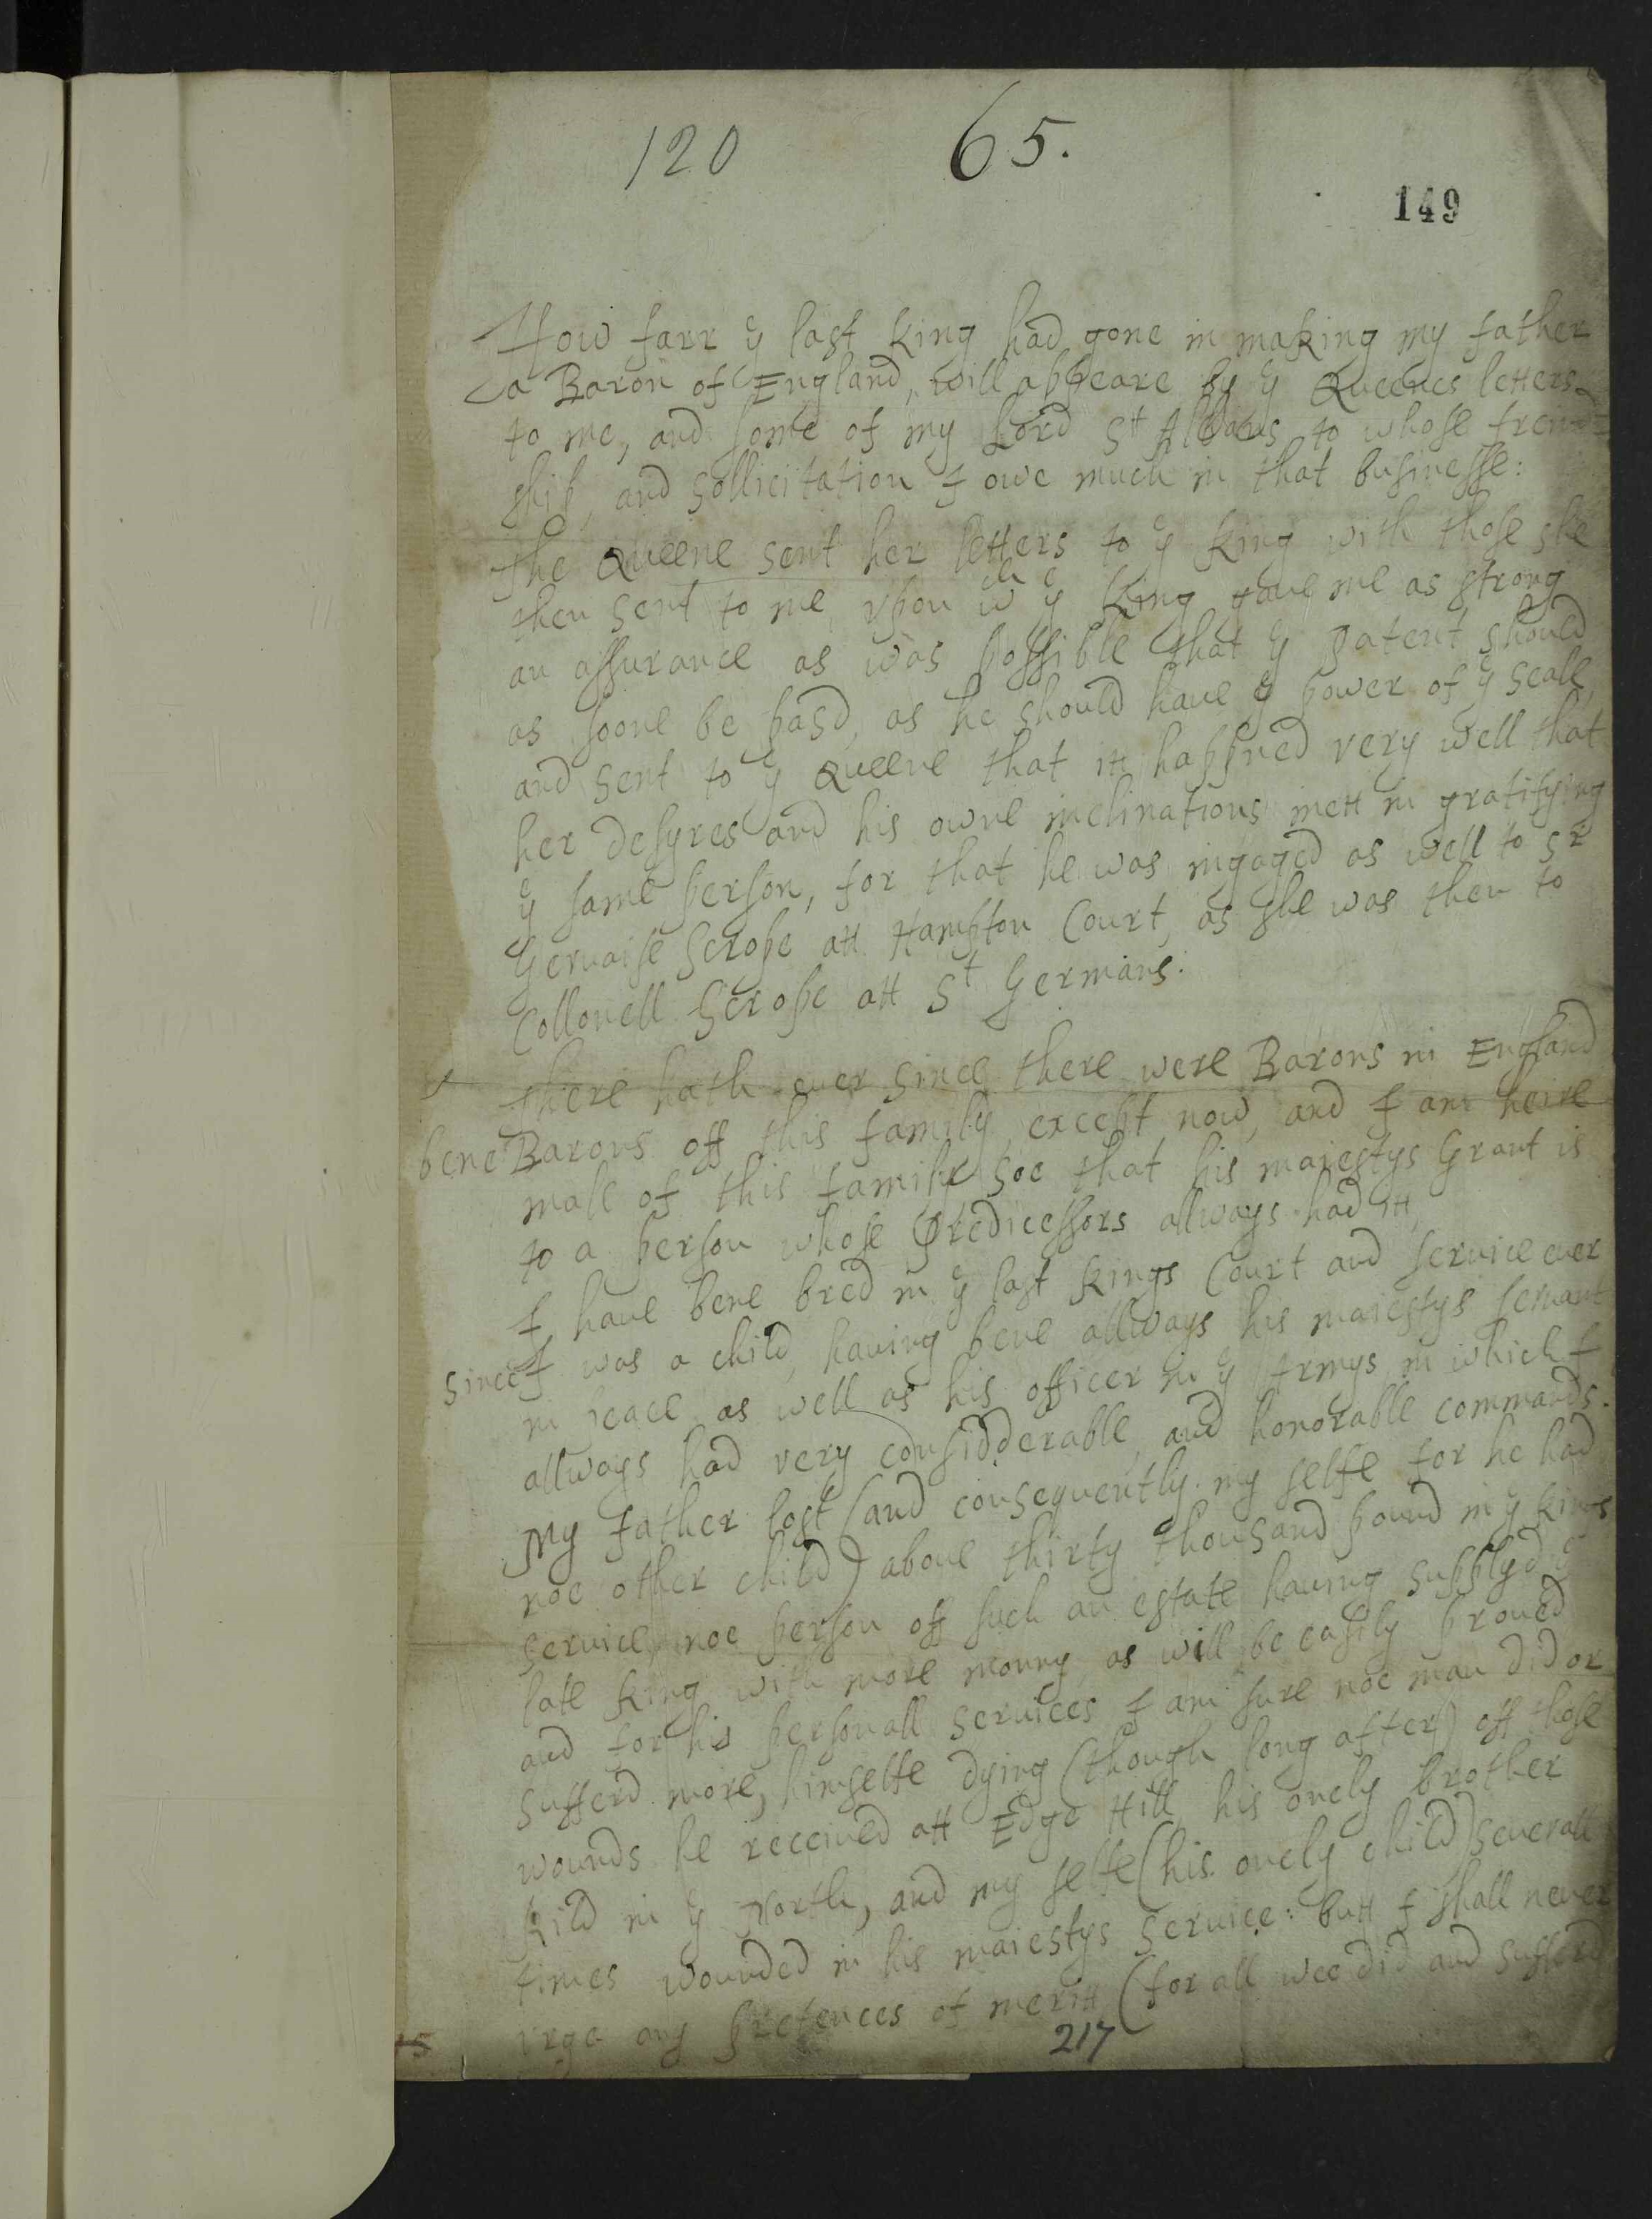 120 65.
149
How farr yͤ last King had gone in making my father
a Baron of England, will appeare by yͤ Queenes letters
to me, and some of my Lord Sᵗ Albans to whose freind
ship, and sollicitation I owe much in that businesse:
The Queene sent her letters to yͤ King with those she
then sent to me, vpon wᶜʰ yͤ King gaue me as strong
an assurance as was possible that yͤ Patent should
as soone be pasd, as he should haue yͤ power of yͤ seale,
and sent to yͤ Queene that itt happned very well that
her desyres and his owne inclinations mett in gratifying
yͤ same person, for that he was ingaged as well to Sʳ
Geruaise Scrope att Hampton Court, as she was then to
Collonell Scrope att Sᵗ Germans.
There hath euer since there were Barons in England
bene Barons off this family, except now, and I am heire
male of this familie soe that his maiestys Grant is
to a person whose Predicessors allways had itt,
I haue bene bred in yͤ last Kings Court and seruice euer
since I was a child, hauing bene allways his maiestys seruant
in peace as well as his officer in yͤ Armys, in which I
allways had very considderable, and honorable commands.
My father lost (and consequently my selfe for he had
noe other child) aboue thirty thousand pound in yͤ Kings
seruice, noe person off such an estate hauing supplyd yͤ
late King with more monny as will be easily proued
and for his personall seruices I am sure noe man did or
sufferd more, himselfe dying (though long after) off those
wounds he receiued att Edge Hill, his onely brother
kild in yͤ North, and my selfe (his onely child) seuerall
times wounded in his maiestys seruice: butt I shall neuer
vrge any pretences of meritt (for all wee did and sufferd
217